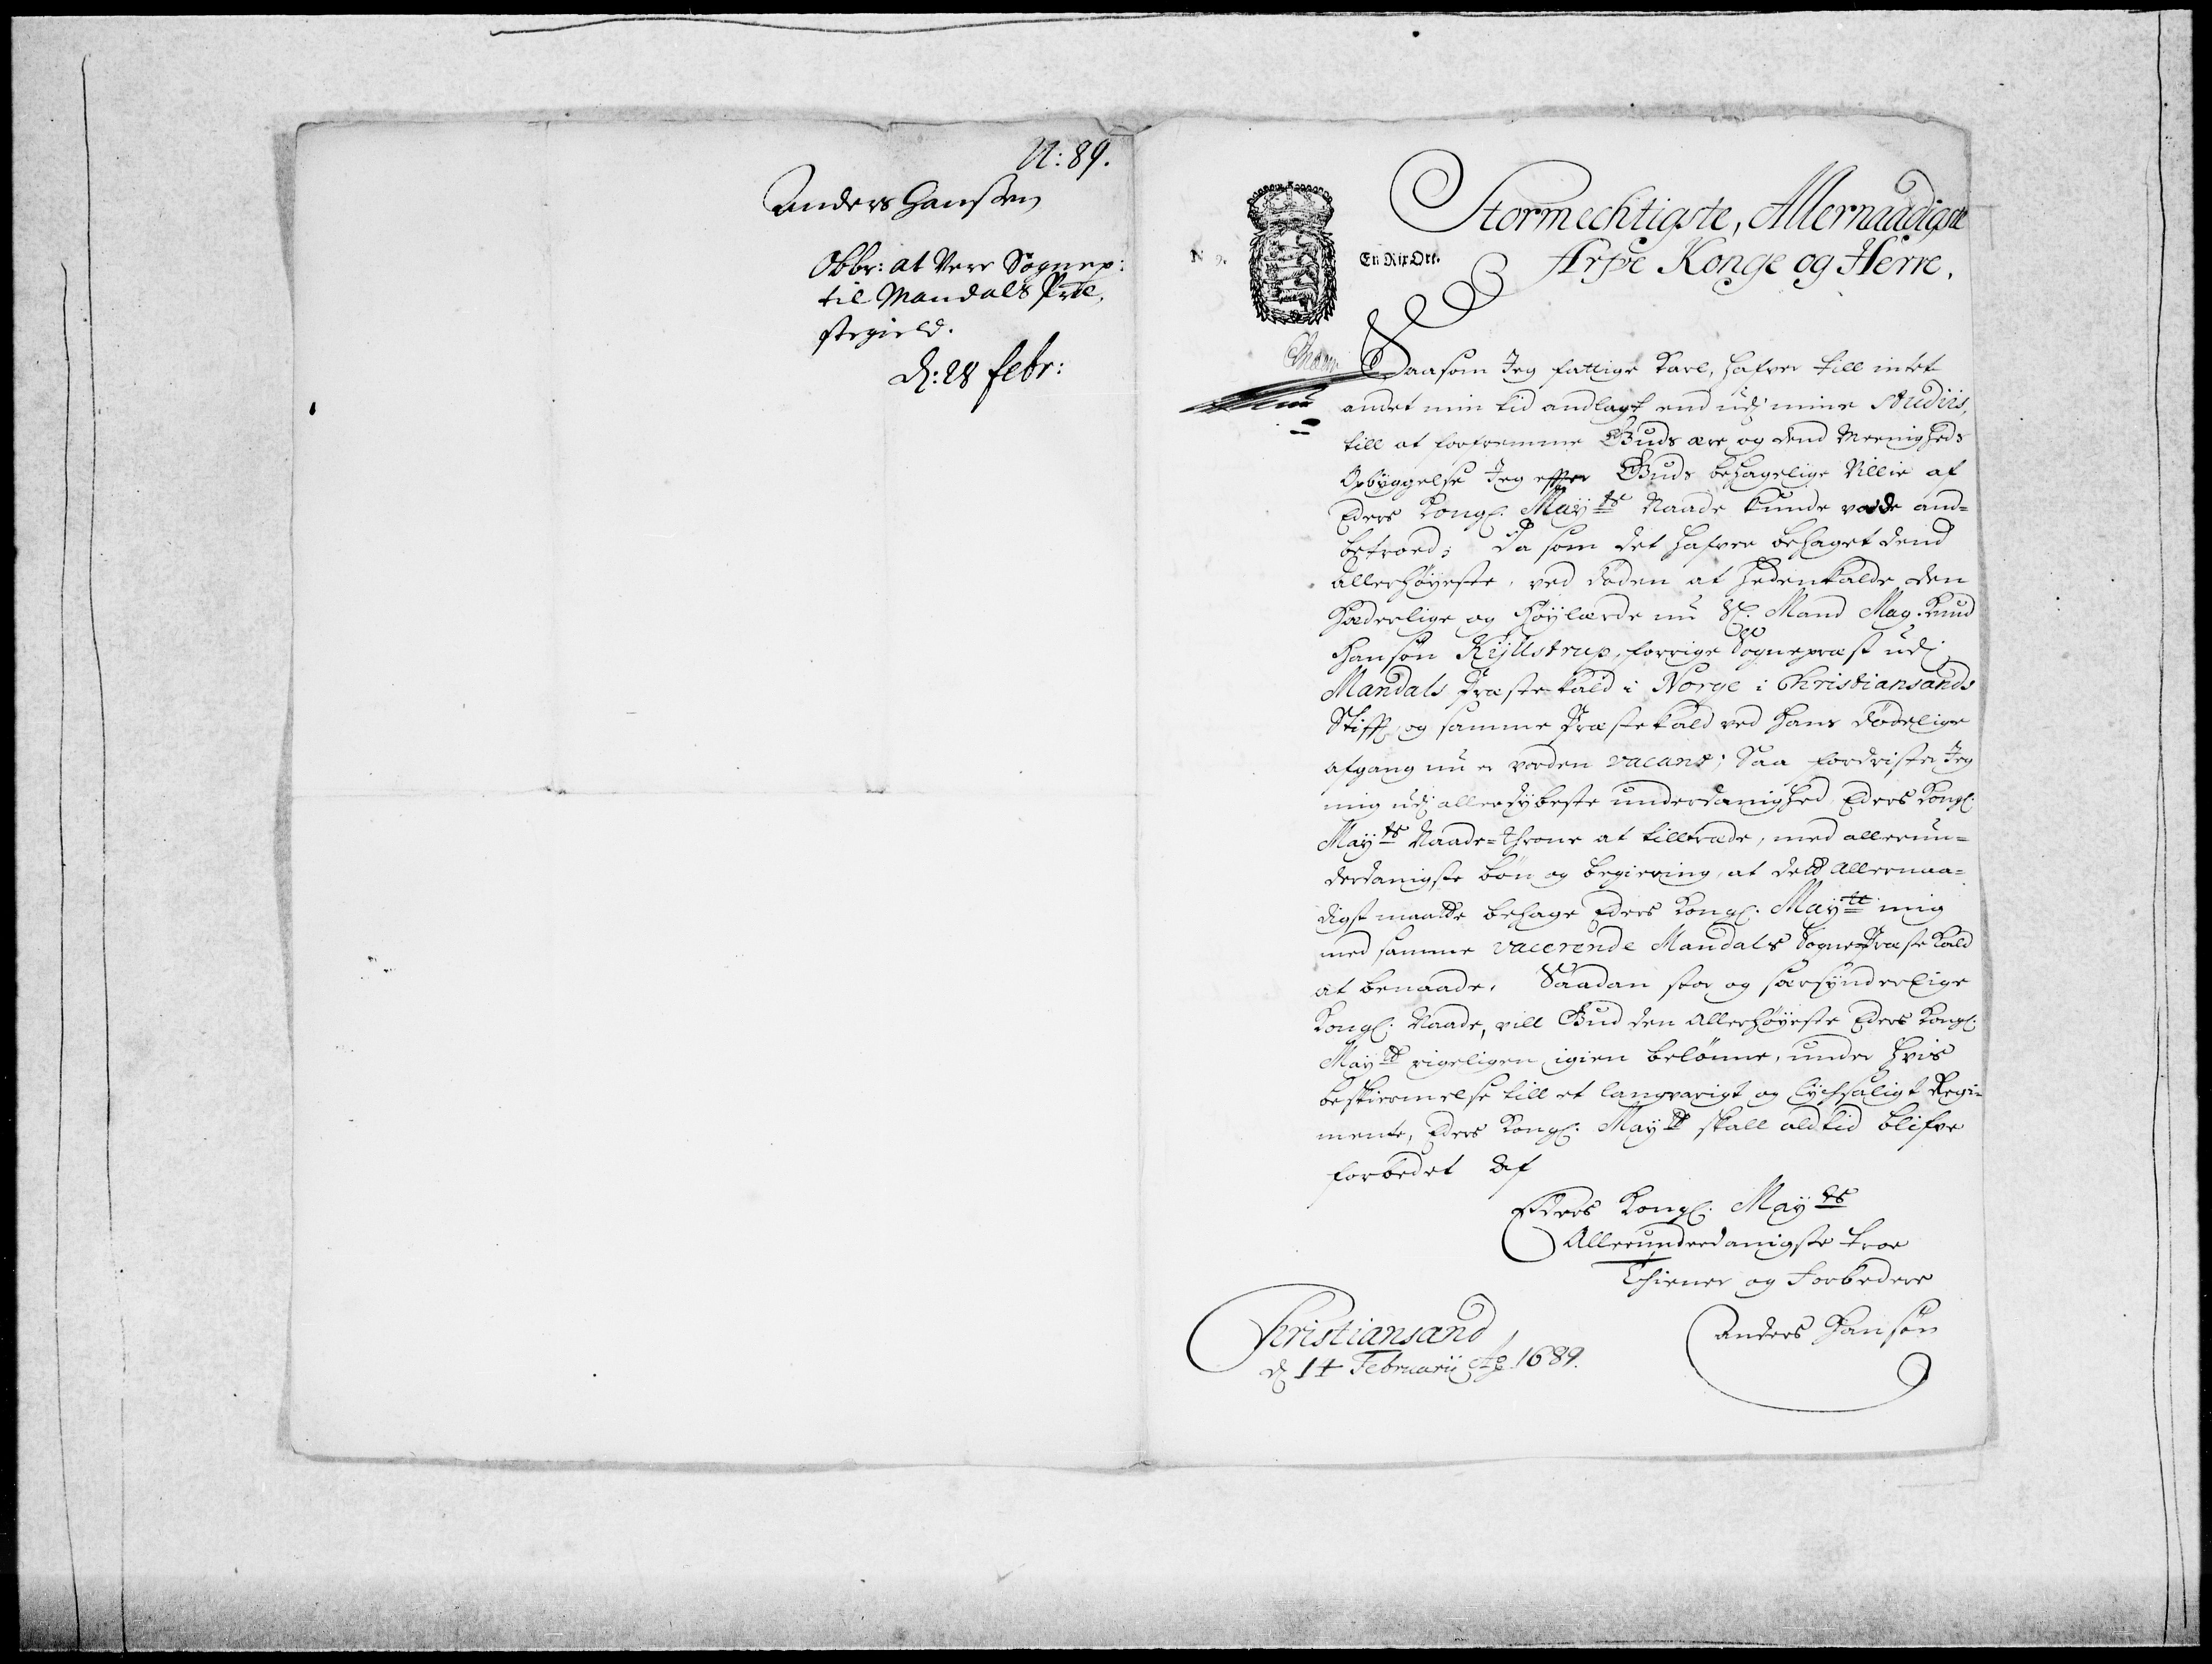 N: 89.
Anders Hanssen
Obbr: at Vere Sognep:
til Mandals Præ,
stegield.
d: 28 febr:
Stormechtigste, Allernaadigste
Arfve Konge og Herre.
En Rix Ort.
Saasom Jeg fattige Karl, hafver till intet
andet min tid andlagt end udj mine Studiis,
till at forfremme Guds ære og dend Meenigheds
Opbyggelse Jeg effter Guds behagelige Villie af
Eders Kongl: Mayts Naade kunde vorde and=
betroed; Da som det hafver behaget dend
allerhøyeste, ved døden at hedenkalde den
Hæderlige og Høylærde nu Sl: Mand Mag. Knud
Hansøn Kyllstrup, forrige Sognepræst udj
Mandals Præstekald i Norge i Christiansands
Stifft, og samme Præstekald ved hans dødelige
afgang nu er vorden vacant; Saa fordrister Jeg
mig udj allerdybeste underdanighed Eders Kongl:
Mayts Naade=throne at tilltræde, med allerun=
derdanigste bøn og begiering, at dett Allernaa=
digst maatte behage Eders Kongl: Maytt mig
med samme vacerende Mandals Sogne-Præste Kald
at benaade. Saadan stor og særsynderlige
Kongl: Naade, vill Gud den Allerhøyeste Eders Kongl:
Maytt rigeligen igien belønne, under hvis
beskiermelse till et langvarigt og lychsaligt Regi=
mente, Eders Kongl: Maytt skall altid blifve
forbedet af
Eders Kongl: Mayts
Allerunderdanigste troe
Thiener og Forbedere
Anders Hansøn
Christiansand
d 14 Februarii Ao 1689.